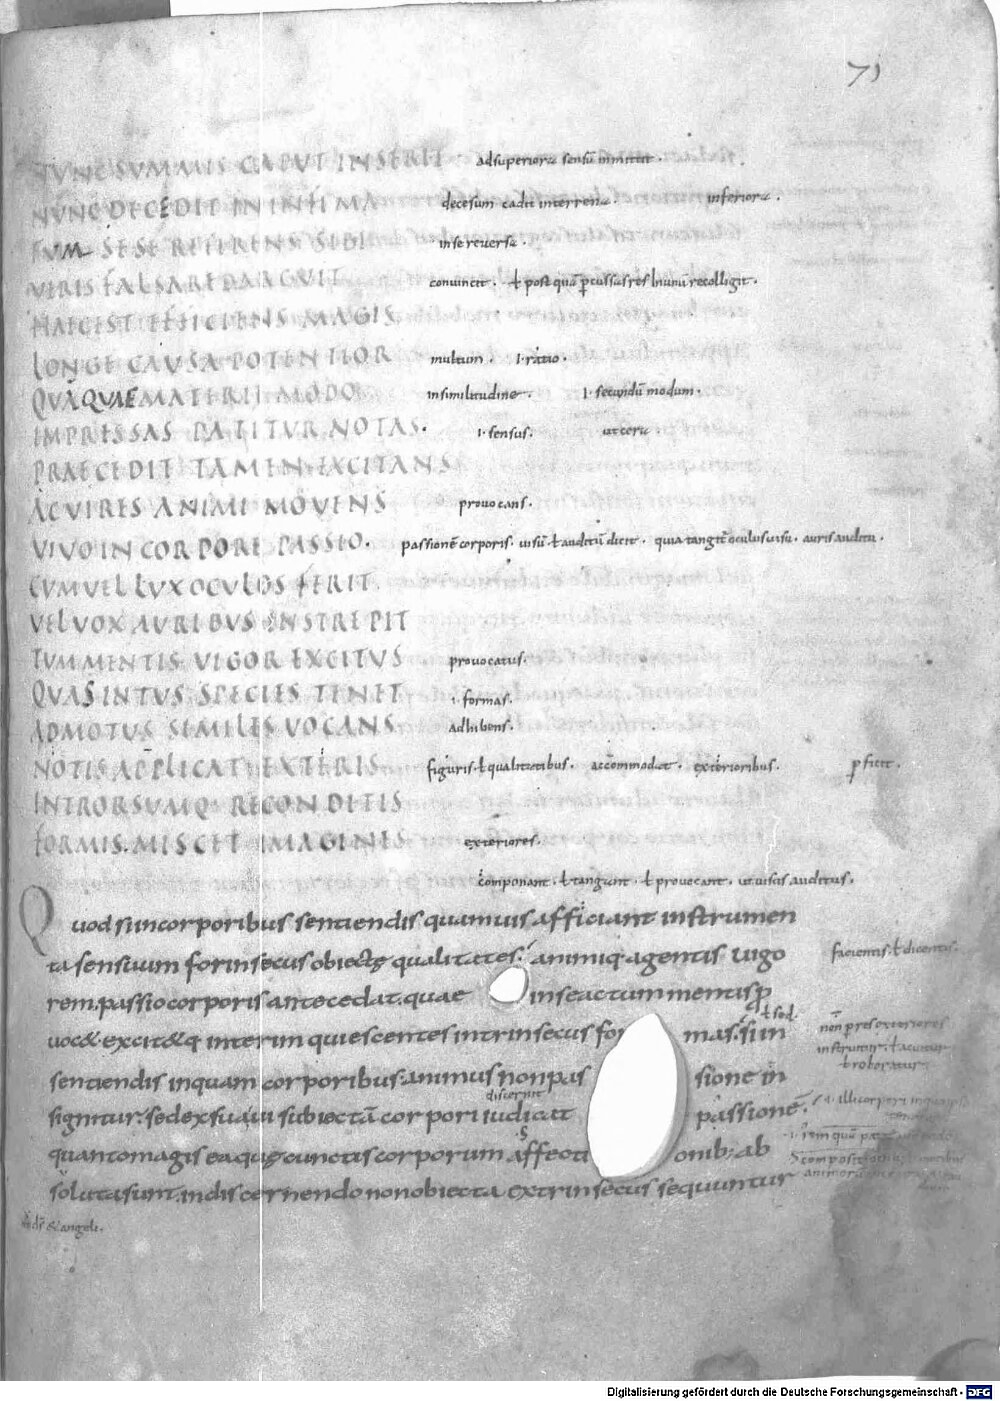 71
NUNC SUMMIS CAPUT INSERIT · ad superiora sensu inmittit ·
NUNC DECEDIT IN INFIMA decesum cadit in terrena · inferiora ·
TUM SESE REFERENS SIBI in se reversa ·
VERIS FALSA REDARGUIT convincit · ł postquā percussas res hunū recolligit ·
HAEC EST EFFICIENS MAGIS
LONGE CAUSA POTENTIOR multum · i ratio ·
QUĀ QUAE MATERIĘ MODO in similitudine · i · secundū modum ·
IMPRESSAS PATITUR NOTAS · i · sensus · ut cera
PRAECEDIT TAMEN EXCITANS
AC VIRES ANIMI MOVENS provocans ·
VIVO IN CORPORE PASSIO · passionē corporis · visū · ł auditū dicit · quia tangit oculus visu · auris auditu ·
CUM VEL LUX OCULOS FERIT
VEL VOX AURIBUS INSTREPIT
TUM MENTIS VIGOR EXCITUS provocatus ·
QUAS INTUS SPECIES TENET i · formas ·
ADMOTUS SIMILES VOCANS adhibens ·
NOTIS APPLICAT EXTERIS figuris · ł qualitatibus · accommodat · exterioribus · p ficit ·
INTRORSUMQ· RECONDITIS
FORMIS MISCET IMAGINES exteriores ·
componant · ł tangunt · ł provocant · ut visus auditus ·
Quod si in corporibus sentiendis quamvis afficiant instrumen
ta sensuum forinsecus obiectę qualitates · animiq· agentis vigo facientis · ł dicentis ·
rem · passio corporis antecedat · quae in se actum mentis p
ł sed ·
voc& · excit&q· interim quiescentes intrinsecus formas · si in
sentiendis inquam corporibus · animus non passione in
discernit
signitur · sed ex sua vi subiectā corpori iudicat passionē ·
quanto magis ea quę cunctis corporum affectionib; ab
soluta sunt · in discernendo non obiecta extrinsecus sequuntur
ut dr̄ & angeli ·
Digitalisierung gefördert durch die Deutsche Forschungsgemeinschaft - DFG